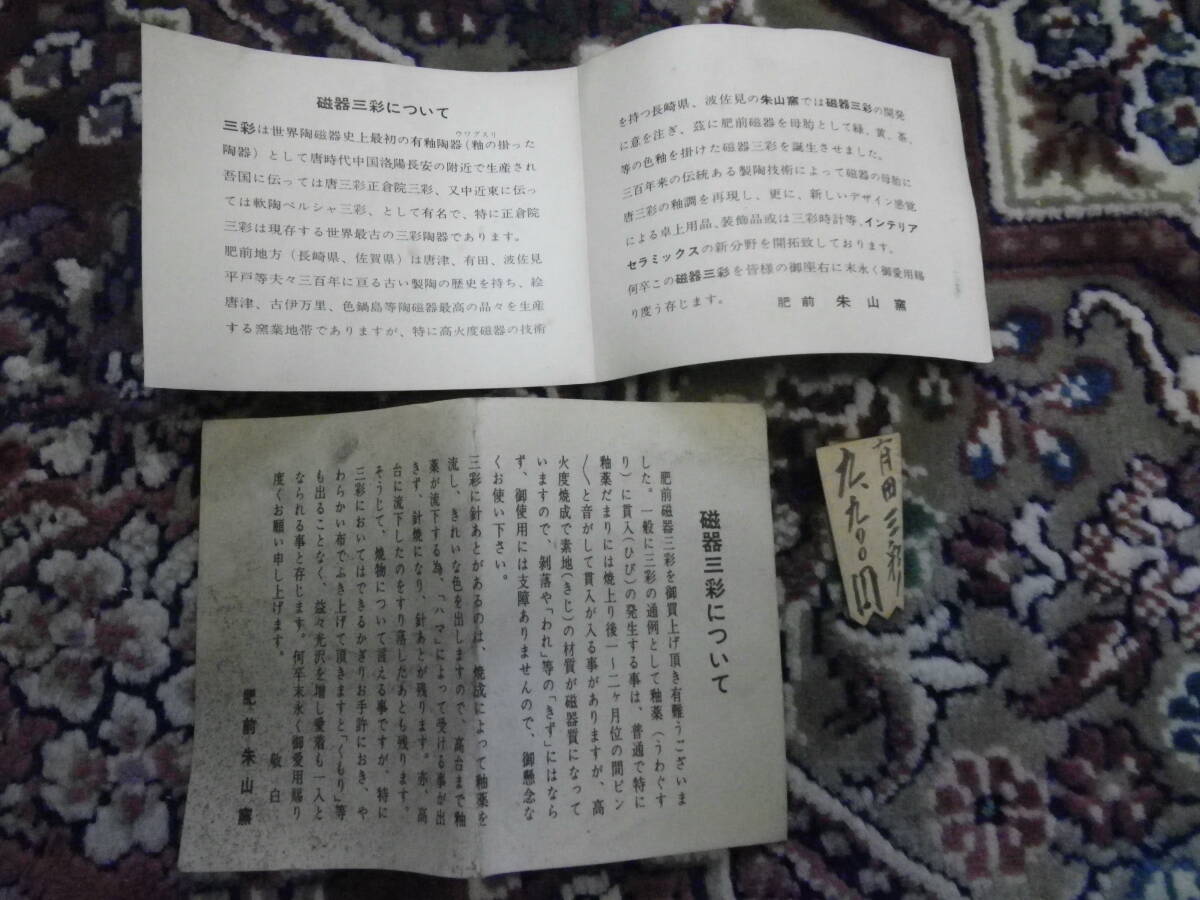 磁器三彩について
三彩は世界陶磁器史上最初の有釉陶器(釉の掛った
ウワグスリ
陶器)として唐時代中国洛陽長安の附近で生産され
吾国に伝っては唐三彩正倉院三彩、又中近東に伝っ
ては軟陶ペルシャ三彩、として有名で、特に正倉院
三彩は現存する世界最古の三彩陶器であります。
肥前地方(長崎県、佐賀県)は唐津、有田、波佐見
平戸等夫々三百年に亘る古い製陶の歴史を持ち、絵
唐津、古伊万里、色鍋島等陶磁器最高の品々を生産
する窯業地帯でありますが、特に高火度磁器の技術
を持つ長崎県、波佐見の朱山窯では磁器三彩の開発
に意を注ぎ、茲に肥前磁器を母胎として緑、黄、茶、
等の色釉を掛けた磁器三彩を誕生させました。
三百年来の伝統ある製陶技術によって磁器の母胎に
唐三彩の釉調を再現し、更に、新しいデザイン感覚
による卓上用品、装飾品或は三彩時計等、インテリア
セラミックスの新分野を開拓致しております。
何卒この磁器三彩を皆様の御座右に末永く御愛用賜
り度う存じます。
肥前 朱山窯
磁器三彩について
肥前磁器三彩を御買上げ頂き有難うございま
した。一般に三彩の通例として釉薬(うわぐす
り)に貫入(ひび)の発生する事は、普通で特に
釉薬だまりには焼上り後一〜二ヶ月位の間ピン
〳〵と音がして貫入が入る事がありますが、高
火度焼成で素地(きじ)の材質が磁器質になって
いますので、剥落や「われ」等の「きず」にはなら
ず、御使用には支障ありませんので、御懸念な
くお使い下さい。
三彩に針あとがあるのは、焼成によって釉薬を
流し、きれいな色を出しますので、高台まで釉
薬が流下する為、「ハマ」によって受ける事が出
きず、針焼になり、針あとが残ります。亦、高
台に流下したのをすり落したあとも残ります。
そうじて、焼物について言える事ですが、特に
三彩においてはできるかぎりお手許におき、や
わらかい布でふき上げて頂きますと「くもり」等
も出ることなく、益々光沢を増し愛着も一入と
なられる事と存じます。何卒末永く御愛用賜り
度くお願い申し上げます。
敬白
肥前朱山窯
有田三彩
九、九〇〇円